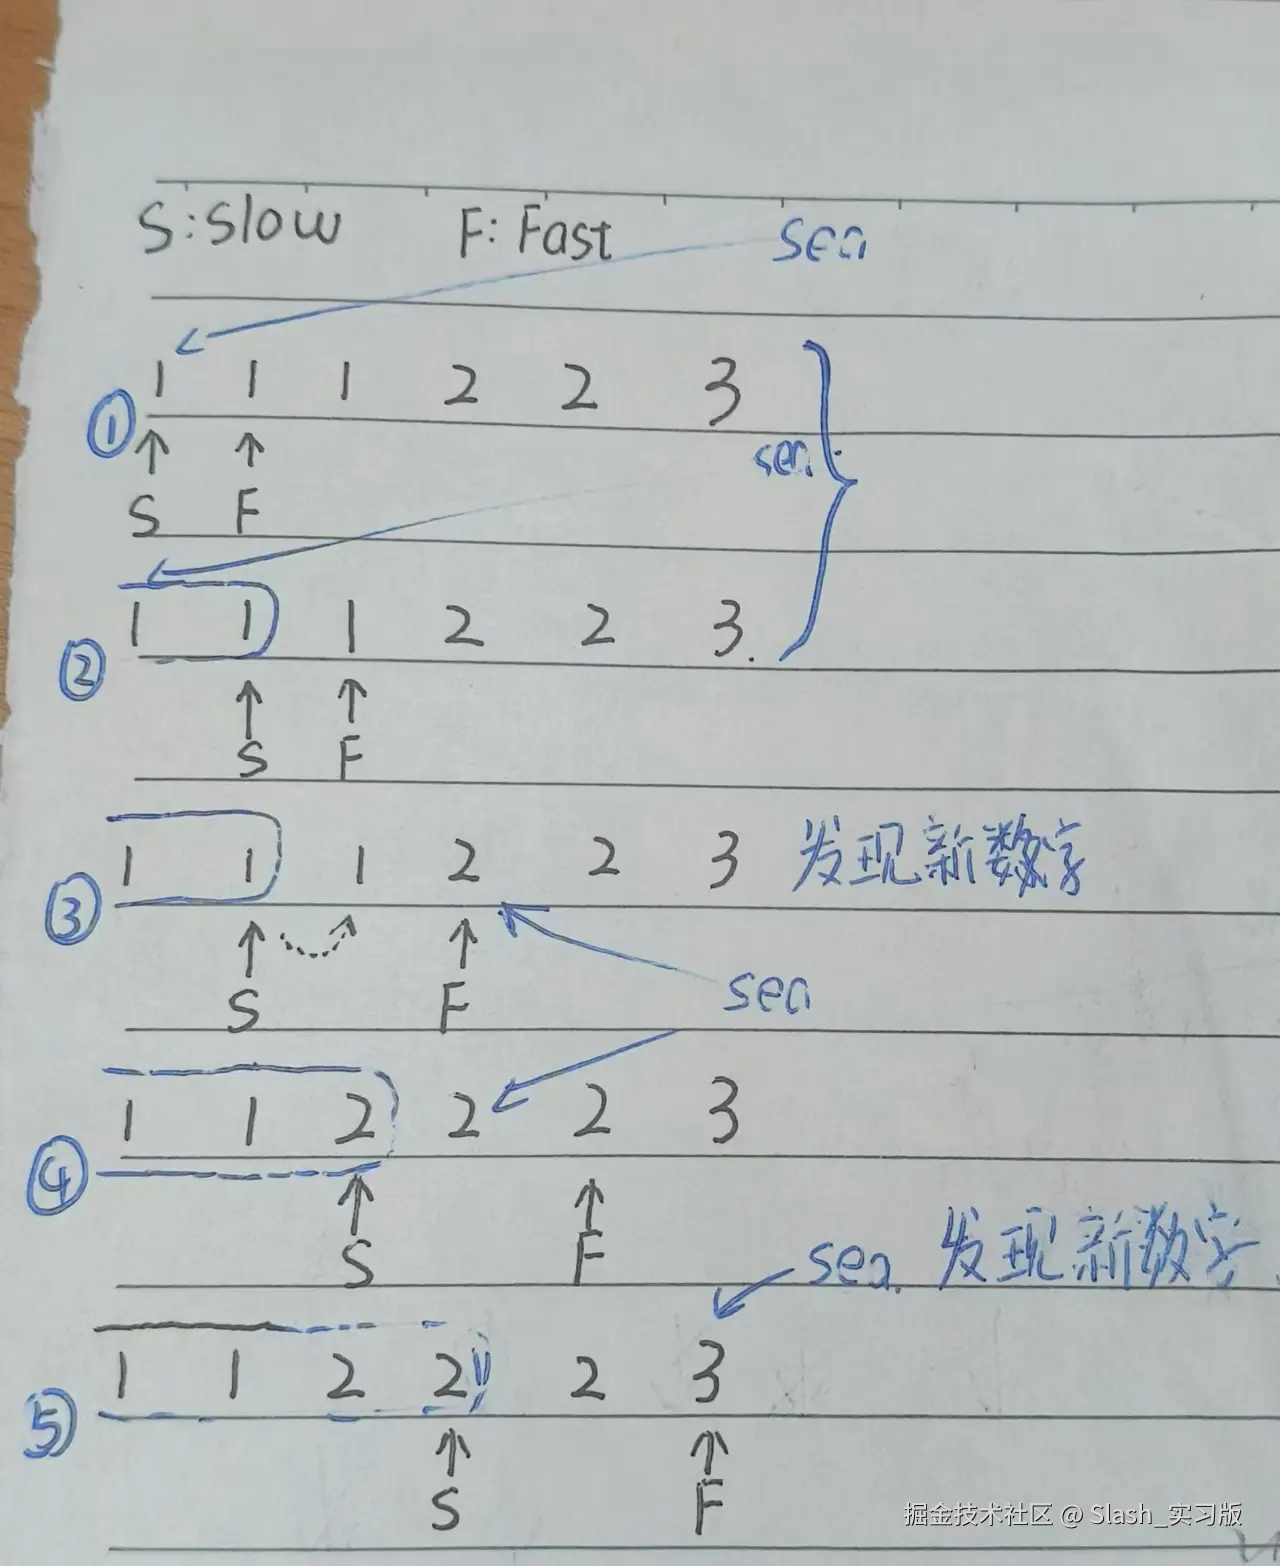 S:Slow F:Fast sea
1 1 1 2 2 3
① sea
S F
1 1 1 2 2 3.
②
S F
1 1 1 2 2 3 发现新数字
③
S F sea
1 1 2 2 2 3
④
S F sea. 发现新数字
1 1 2 2 2 3
⑤
S F
掘金技术社区 @ Slash_实习版